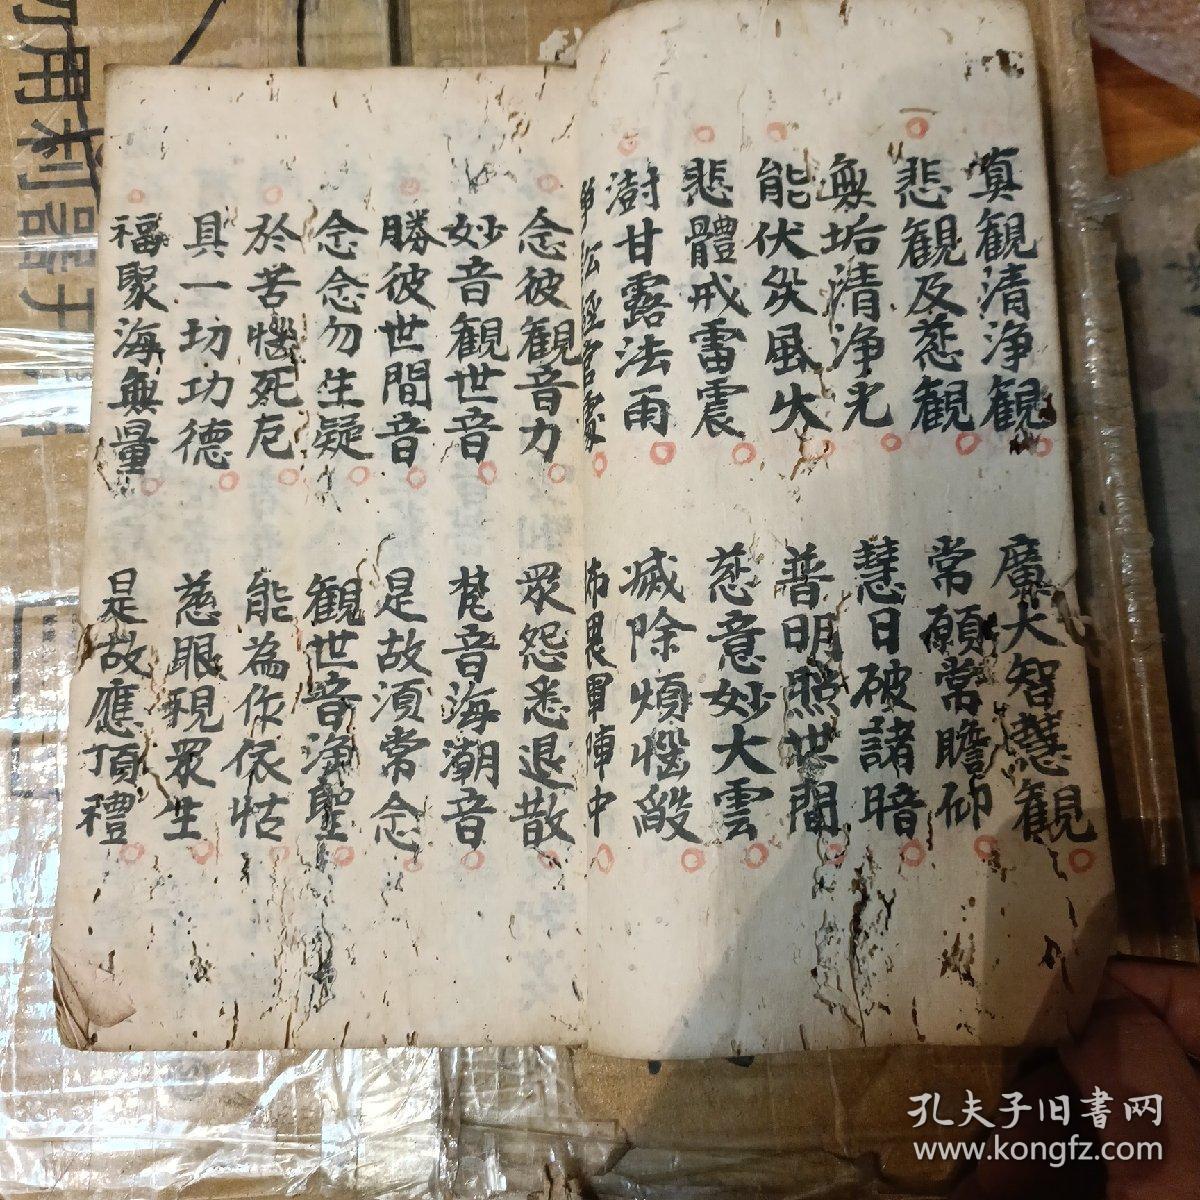 真観清浄観 廣大智慧観
悲観及慈観 常願常瞻仰
無垢清浄光 慧日破諸暗
能伏災風火 普明照世間
悲體戒雷震 慈意妙大雲
澍甘露法雨 滅除煩惱
怖畏軍陣中
念彼觀音力 眾怨悉退散
妙音觀世音 梵音海潮音
勝彼世間音 是故須常念
念念勿生疑 觀世音淨聖
於苦惱死厄 能為作依怙
具一切功德 慈眼視眾生
福聚海無量 是故應頂禮
孔夫子旧書网
www.kongfz.com